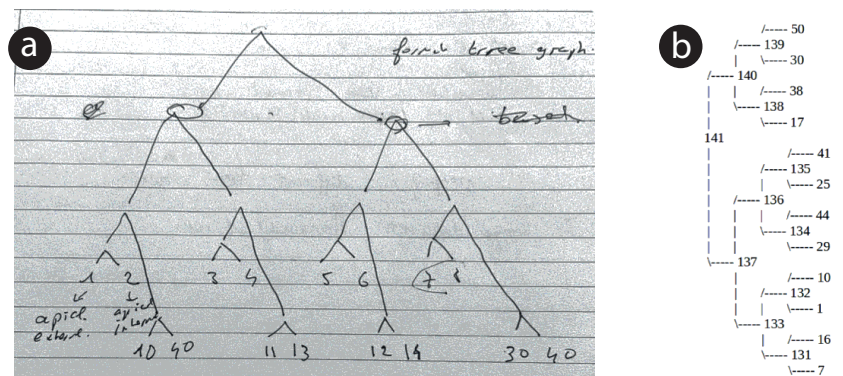 a
formal tree graph.
1 2 3 4 5 6 7 8
apical
extern.
apical
intern
10 40 11 13 12 14 30 40
b
/----- 50
/----- 139
| \----- 30
/----- 140
| | /----- 38
| \----- 138
| \----- 17
141
| /----- 41
| /----- 135
| | \----- 25
| /----- 136
| | | /----- 44
| | \----- 134
| | \----- 29
\----- 137
| /----- 10
| /----- 132
| | \----- 1
\----- 133
| /----- 16
\----- 131
\----- 7